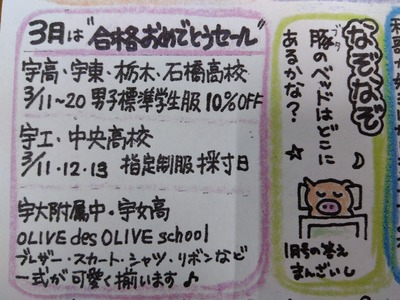 3月は"合格おめでとうセール"
宇高・宇東・栃木・石橋高校
3/11~20 男子標準学生服 10%OFF
宇工・中央高校
3/11・12・13 指定制服採寸日
宇大附属中・宇女高
OLIVE des OLIVE school
ブレザー・スカート・シャツ・リボンなど
一式が可愛く揃います♪
なぞなぞ♪
豚のベッドはどこに
ブタ
あるかな?☆
1月号の答え
まんざいし